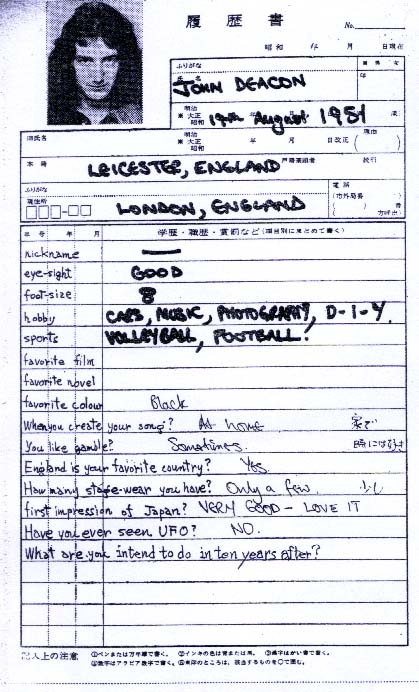 履歴書
No.
昭和 年 月 日現在
ふりがな
氏名 JOHN DEACON 印
明治 大正 昭和 19th August 1951
旧氏名 明治 大正 昭和 年 月 日改正 (理由 )
本籍 LEICESTER, ENGLAND
ふりがな 電話
現住所 LONDON, ENGLAND (市外局番 )
年号 年 月 学歴・職歴・賞罰など(項目別にまとめて書く)
nickname —
eye-sight GOOD
foot-size 8
hobby CARS, MUSIC, PHOTOGRAPHY, D-I-Y.
sports VOLLEYBALL, FOOTBALL!
favorite film
favorite novel
favorite colour Black
When you create your song? At home 家で
You like gamble? Sometimes. 時には好き
England is your favorite country? Yes
How many stage-wear you have? Only a few. 少し
first impression of Japan? VERY GOOD - LOVE IT
Have you ever seen UFO? NO.
What are you intend to do in ten years after?
記入上の注意 ①ペンまたは万年筆で書く。 ②インキの色は青または黒。 ③漢字はかい書で書く。
④数字はアラビア数字で書く。 ⑤※印のところは、該当するものを○で囲む。